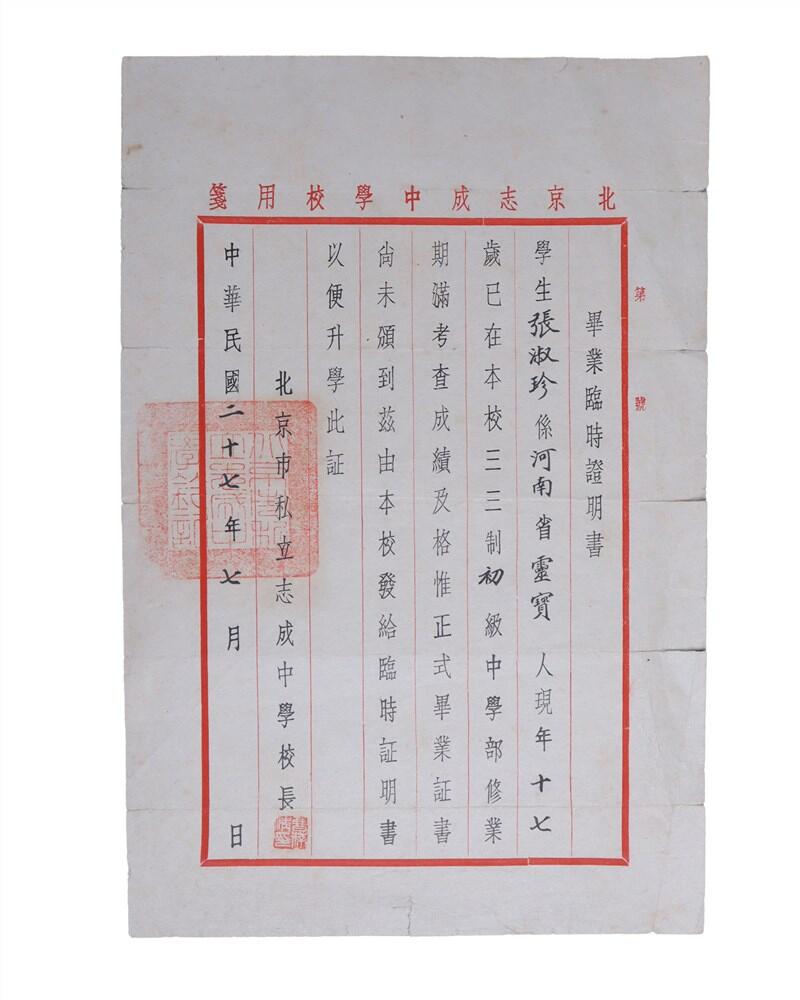 北京志成中學校用箋
第 號
畢業臨時證明書
學生張淑珍係河南省靈寶人現年十七
歲已在本校三三制初級中學部修業
期滿考查成績及格惟正式畢業証書
尚未頒到茲由本校發給臨時証明書
以便升學此証
北京市私立志成中學校長
中華民國二十七年七月 日